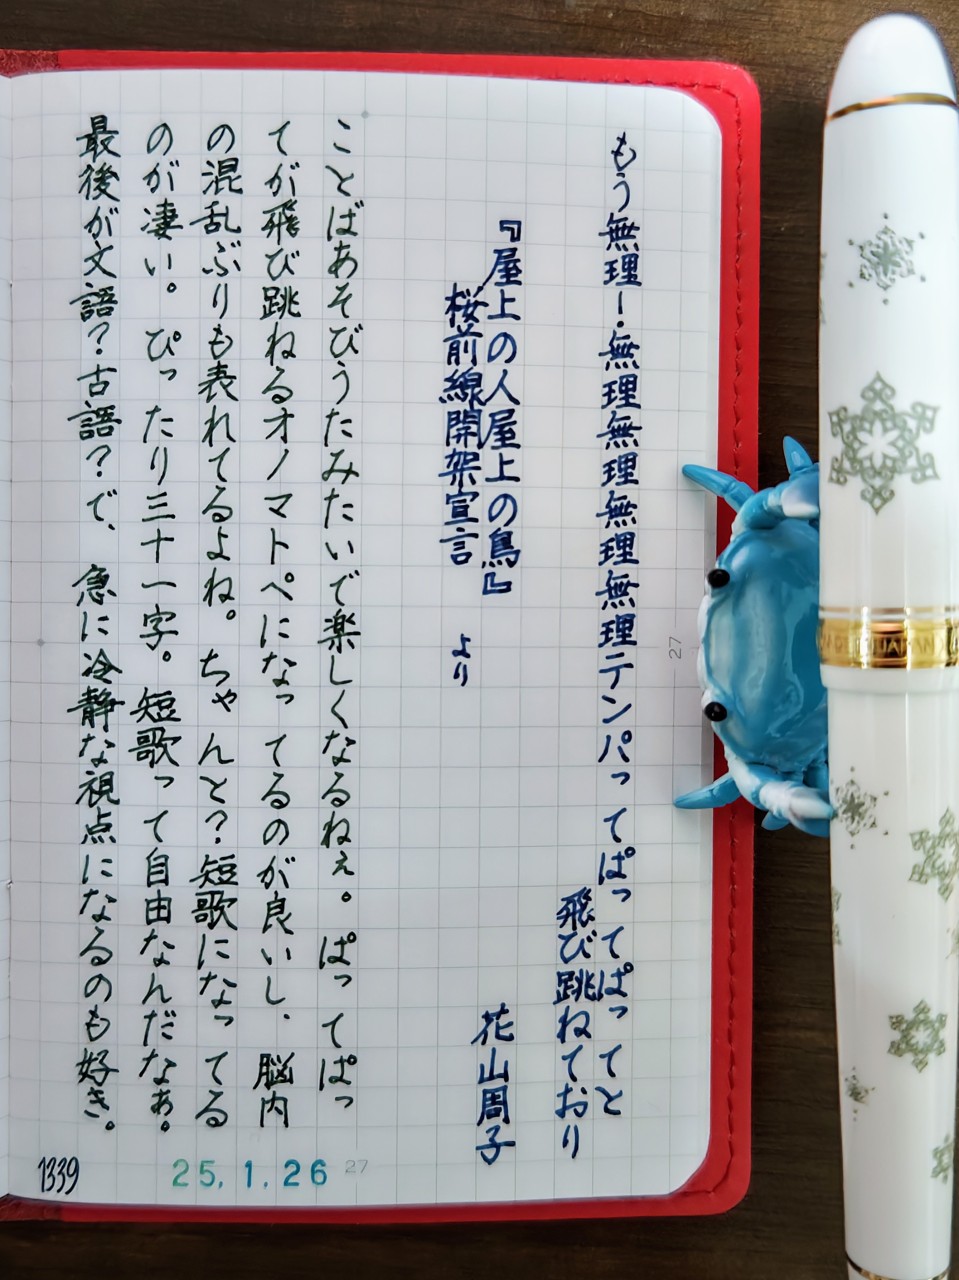 もう無理ー・無理無理無理無理無理テンパってぱってぱってと
飛び跳ねており
『屋上の人屋上の鳥』
桜前線開架宣言 より
花山周子
ことばあそびうたみたいで楽しくなるねぇ。ぱってぱっ
てが飛び跳ねるオノマトペになってるのが良いし、脳内
の混乱ぶりも表れてるよね。ちゃんと?短歌になってる
のが凄い。ぴったり三十一字。短歌って自由なんだなぁ。
最後が文語?古語?で、急に冷静な視点になるのも好き。
1339
25.1.26
27
27